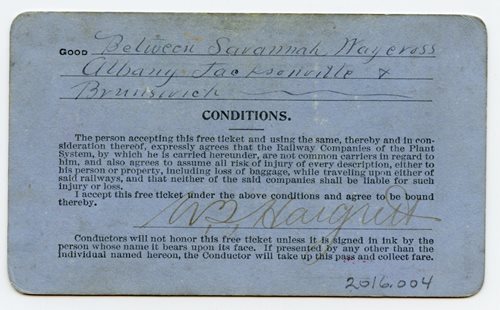 GOOD Between Savannah Waycross
Albany Jacksonville &
Brunswick
CONDITIONS.
The person accepting this free ticket and using the same, thereby and in con-
sideration thereof, expressly agrees that the Railway Companies of the Plant
System, by which he is carried hereunder, are not common carriers in regard to
him, and also agrees to assume all risk of injury of every description, either to
his person or property, including loss of baggage, while traveling upon either of
said railways, and that neither of the said companies shall be liable for such
injury or loss.
I accept this free ticket under the above conditions and agree to be bound
thereby.
Hargrett
Conductors will not honor this free ticket unless it is signed in ink by the
person whose name it bears upon its face. If presented by any other than the
individual named hereon, the Conductor will take up this pass and collect fare.
2016.004